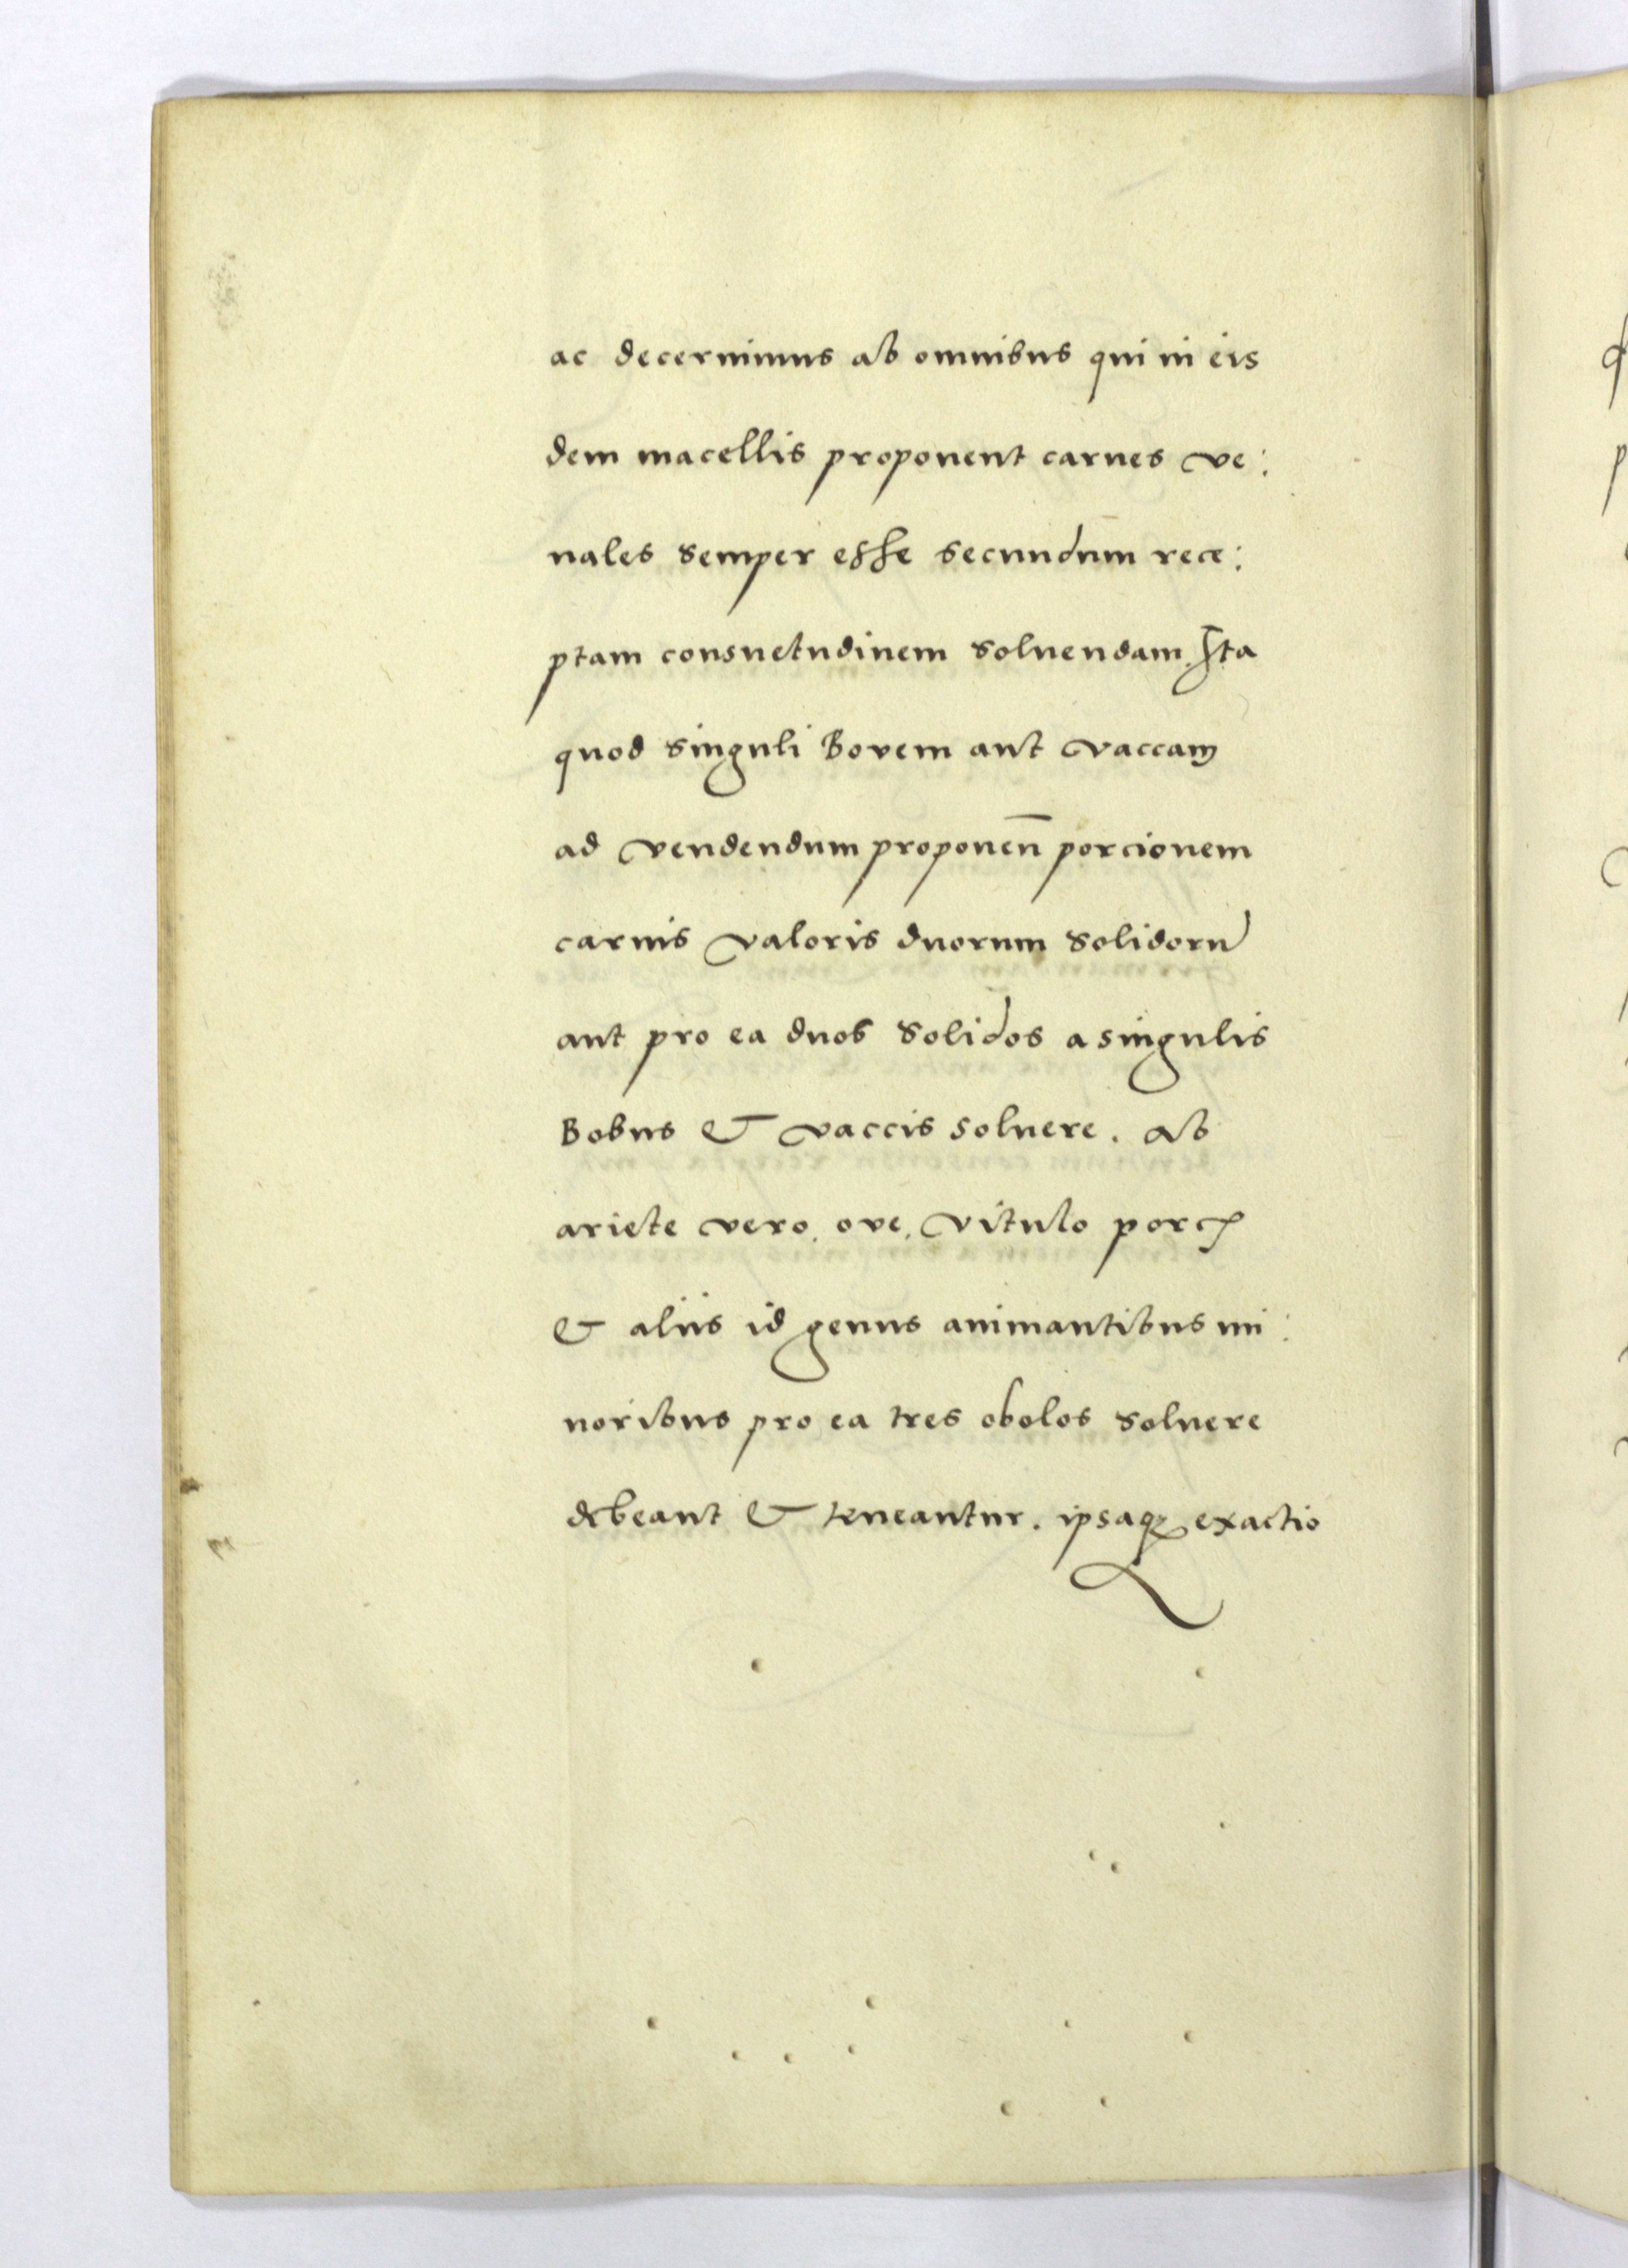 ac decernimus ab omnibus qui in eis
dem macellis proponent carnes ve:
nales semper esse secundum rece:
ptam consuetudinem soluendam. Ita
quod singuli Bovem aut vaccam
ad vendendum proponen̄ porcionem
carnis valoris duorum solidorũ
aut pro ea duos solidos a singulis
Bobus & vaccis soluere. Ab
ariete vero. ove. vitulo porco
& aliis id genus animantibus mi:
noribus pro ea tres obolos soluere
debeant & teneantur. ipsaqꝫ exactio